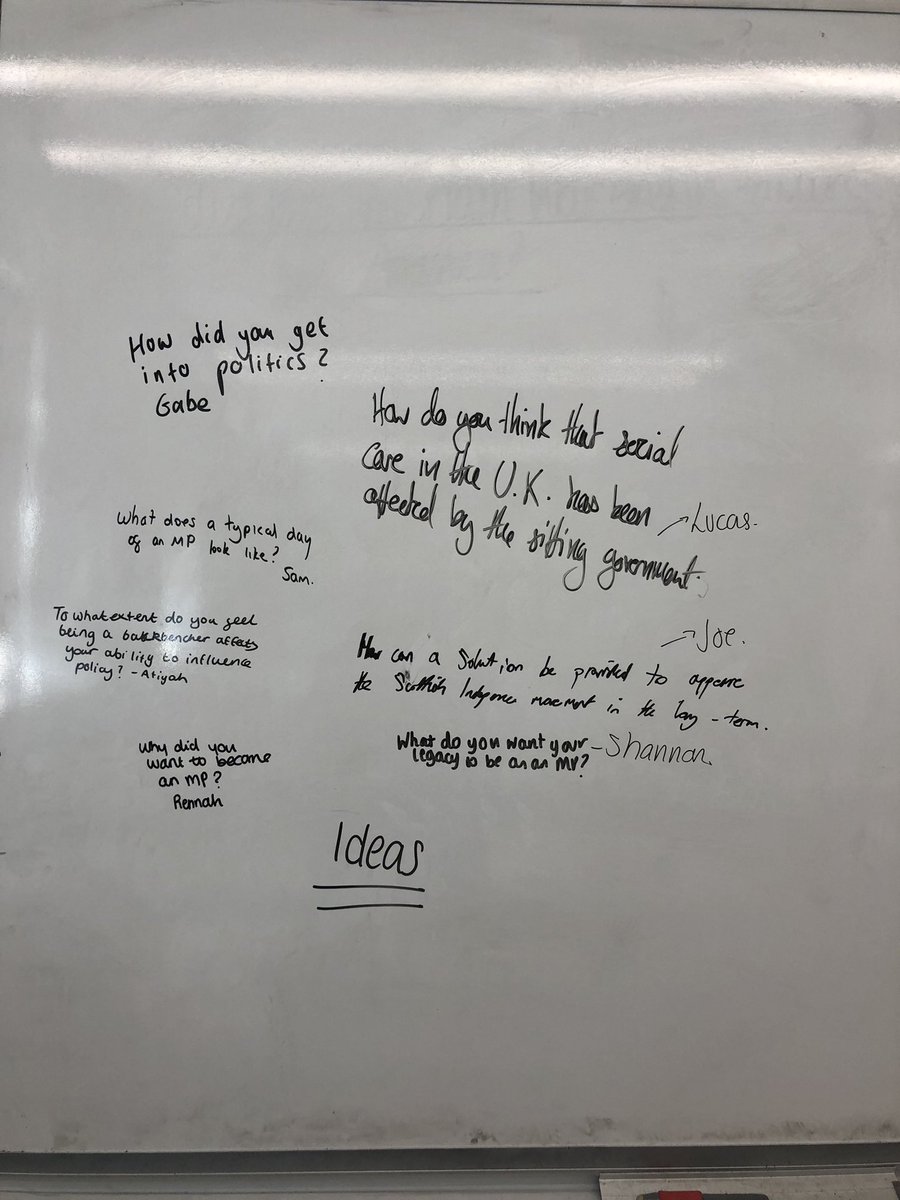 How did you get
into politics?
Gabe
How do you think that social
care in the U.K. has been
affected by the sitting government.
→ Lucas.
What does a typical day
of an MP look like?
Sam.
To what extent do you feel
being a backbencher affects
your ability to influence
policy? - Atiyah
→ Joe.
How can a solution be provided to appease
the Scottish movement in the long-term.
Why did you
want to become
an MP?
Rennah
What do you want your - Shannon.
legacy to be an an MP?
Ideas